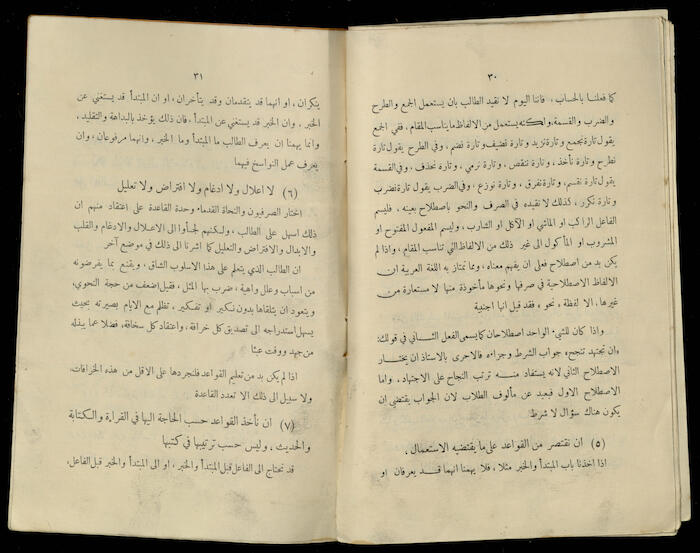 ٣٠
كما فعلنا بالحساب ، فاننا اليوم لا نقيد الطالب بان يستعمل الجمع والطرح
والضرب والقسمة، ولكنه يستعمل من الالفاظ ما يناسب المقام ، ففي الجمع
يقول تارة نجمع وتارة نزيد وتارة نضيف وتارة نضم ، وفي الطرح يقول تارة
نطرح وتارة نأخذ ، وتارة ننقص ، وتارة نرمي ، وتارة نحذف ، وفي القسمة
يقول تارة نقسم ، وتارة نفرق ، وتارة نوزع ، وفي الضرب يقول تارة نضرب
وتارة نكرر ، كذلك لا نقيده في الصرف والنحو باصطلاح بعينه . فليسم
الفاعل الراكب او الماشي او الآكل او الشارب ، وليسم المفعول المفتوح او
المشروب او المأكول الى غير ذلك من الالفاظ التي تناسب المقام ، واذا لم
يكن بد من اصطلاح فعلى ان يفهم معناه ، ومما تمتاز به اللغة العربية ان
الالفاظ الاصطلاحية في صرفها ونحوها مأخوذة منها لا مستعارة من
غيرها . الا لفظة ، نحو ، فقد قيل انها اجنبية
واذا كان للشيء الواحد اصطلاحان كما يسمى الفعل الثاني في قولك:
«ان تجتهد تنجح» جواب الشرط وجزاءه فالاحرى بالاستاذ ان يختار
الاصطلاح الثاني لانه يستفاد منه ترتب النجاح على الاجتهاد ، واما
الاصطلاح الاول فبعيد عن مألوف الطلاب لان الجواب يقتضي ان
يكون هناك سؤال لا شرط
(٥) ان نقتصر من القواعد على ما يقتضيه الاستعمال .
اذا اخذنا باب المبتدأ والخبر مثلا ، فلا يهمنا انهما قد يعرفان او
٣١
ينكران ، او انهما قد يتقدمان وقد يتأخران ، او ان المبتدأ قد يستغني عن
الخبر . وان الخبر قد يستغني عن المبتدأ ، فان ذلك يؤخذ بالبداهة والتقليد ،
وانما يهمنا ان يعرف الطالب ما المبتدأ وما الخبر ، وانهما مرفوعان ، وان
يعرف عمل النواسخ فيهما
(٦) لا اعلال ولا ادغام ولا افتراض ولا تعليل
اختار الصرفيون والنحاة القدماء وحدة القاعدة على اعتقاد منهم ان
ذلك اسهل على الطالب ، ولكنهم لجأوا الى الاعلال والادغام والقلب
والابدال والافتراض والتعليل كما اشرنا الى ذلك في موضع آخر
ان الطالب الذي يتعلم على هذا الاسلوب الشاق ، ويقنع بما يفرضونه
من اسباب وعلل واهية ، ضرب بها المثل ، فقيل اضعف من حجة النحوي،
ويتعود ان يتلقاها بدون نكير او تفكير ، تظلم مع الايام بصيرته بحيث
يسهل استدراجه الى تصديق كل خرافة ، واعتقاد كل سخافة، فضلا عما يبذله
من جهد ووقت عبثا
اذا لم يكن بد من تعليم القواعد فلنجردها على الاقل من هذه الخرافات،
ولا سبيل الى ذلك الا تعدد القاعدة
(٧) ان نأخذ القواعد حسب الحاجة اليها في القراءة والكتابة
والحديث . وليس حسب ترتيبها في كتبها
قد نحتاج الى الفاعل قبل المبتدأ والخبر ، او الى المبتدأ والخبر قبل الفاعل،